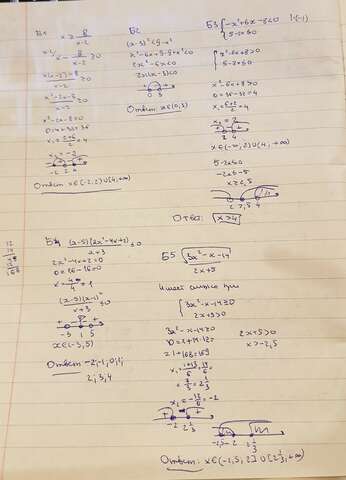 Б1
x ≥ 8/(x-2)
x - 8/(x-2) ≥ 0
(x(x-2)-8)/(x-2) ≥ 0
(x²-2x-8)/(x-2) ≥ 0
x²-2x-8=0
D=4+32=36
x₁=(2+6)/2=4
x₂=-2
-2 2 4
Ответ: x∈[-2;2)∪[4;+∞)
Б2
(x-3)²<9-x²
x²-6x+9-9+x²<0
2x²-6x<0
2x(x-3)<0
0 3
Ответ: x∈(0;3)
Б3
{-x²+6x-8<0 |·(-1)
{5-2x<0
{x²-6x+8>0
{5-2x<0
x²-6x+8>0
D=36-32=4
x₁=(6+2)/2=4
x₂=2
2 4
x∈(-∞;2)∪(4;+∞)
5-2x<0
-2x<-5
x>2,5
2 2,5 4
Ответ: x>4
Б4
(x-5)(2x²-4x+2)/(x+3) ≤0
2x²-4x+2=0
D=16-16=0
x=4/4=1
(x-5)(x-1)²/(x+3) ≤0
-3 1 5
x∈(-3;5)
Ответ: -2;-1;0;1;
2;3;4
Б5
√(3x²-x-14)
2x+5
Имеет смысл при
{3x²-x-14≥0
{2x+5>0
3x²-x-14≥0
D=1+14·12=
=1+168=169
x₁=(1+13)/6=14/6=
=7/3=2 1/3
x₂=-12/6=-2
-2 2 1/3
2x+5>0
x>-2,5
-2,5 -2 2 1/3
Ответ: x∈(-2,5;-2]∪[2 1/3;+∞)